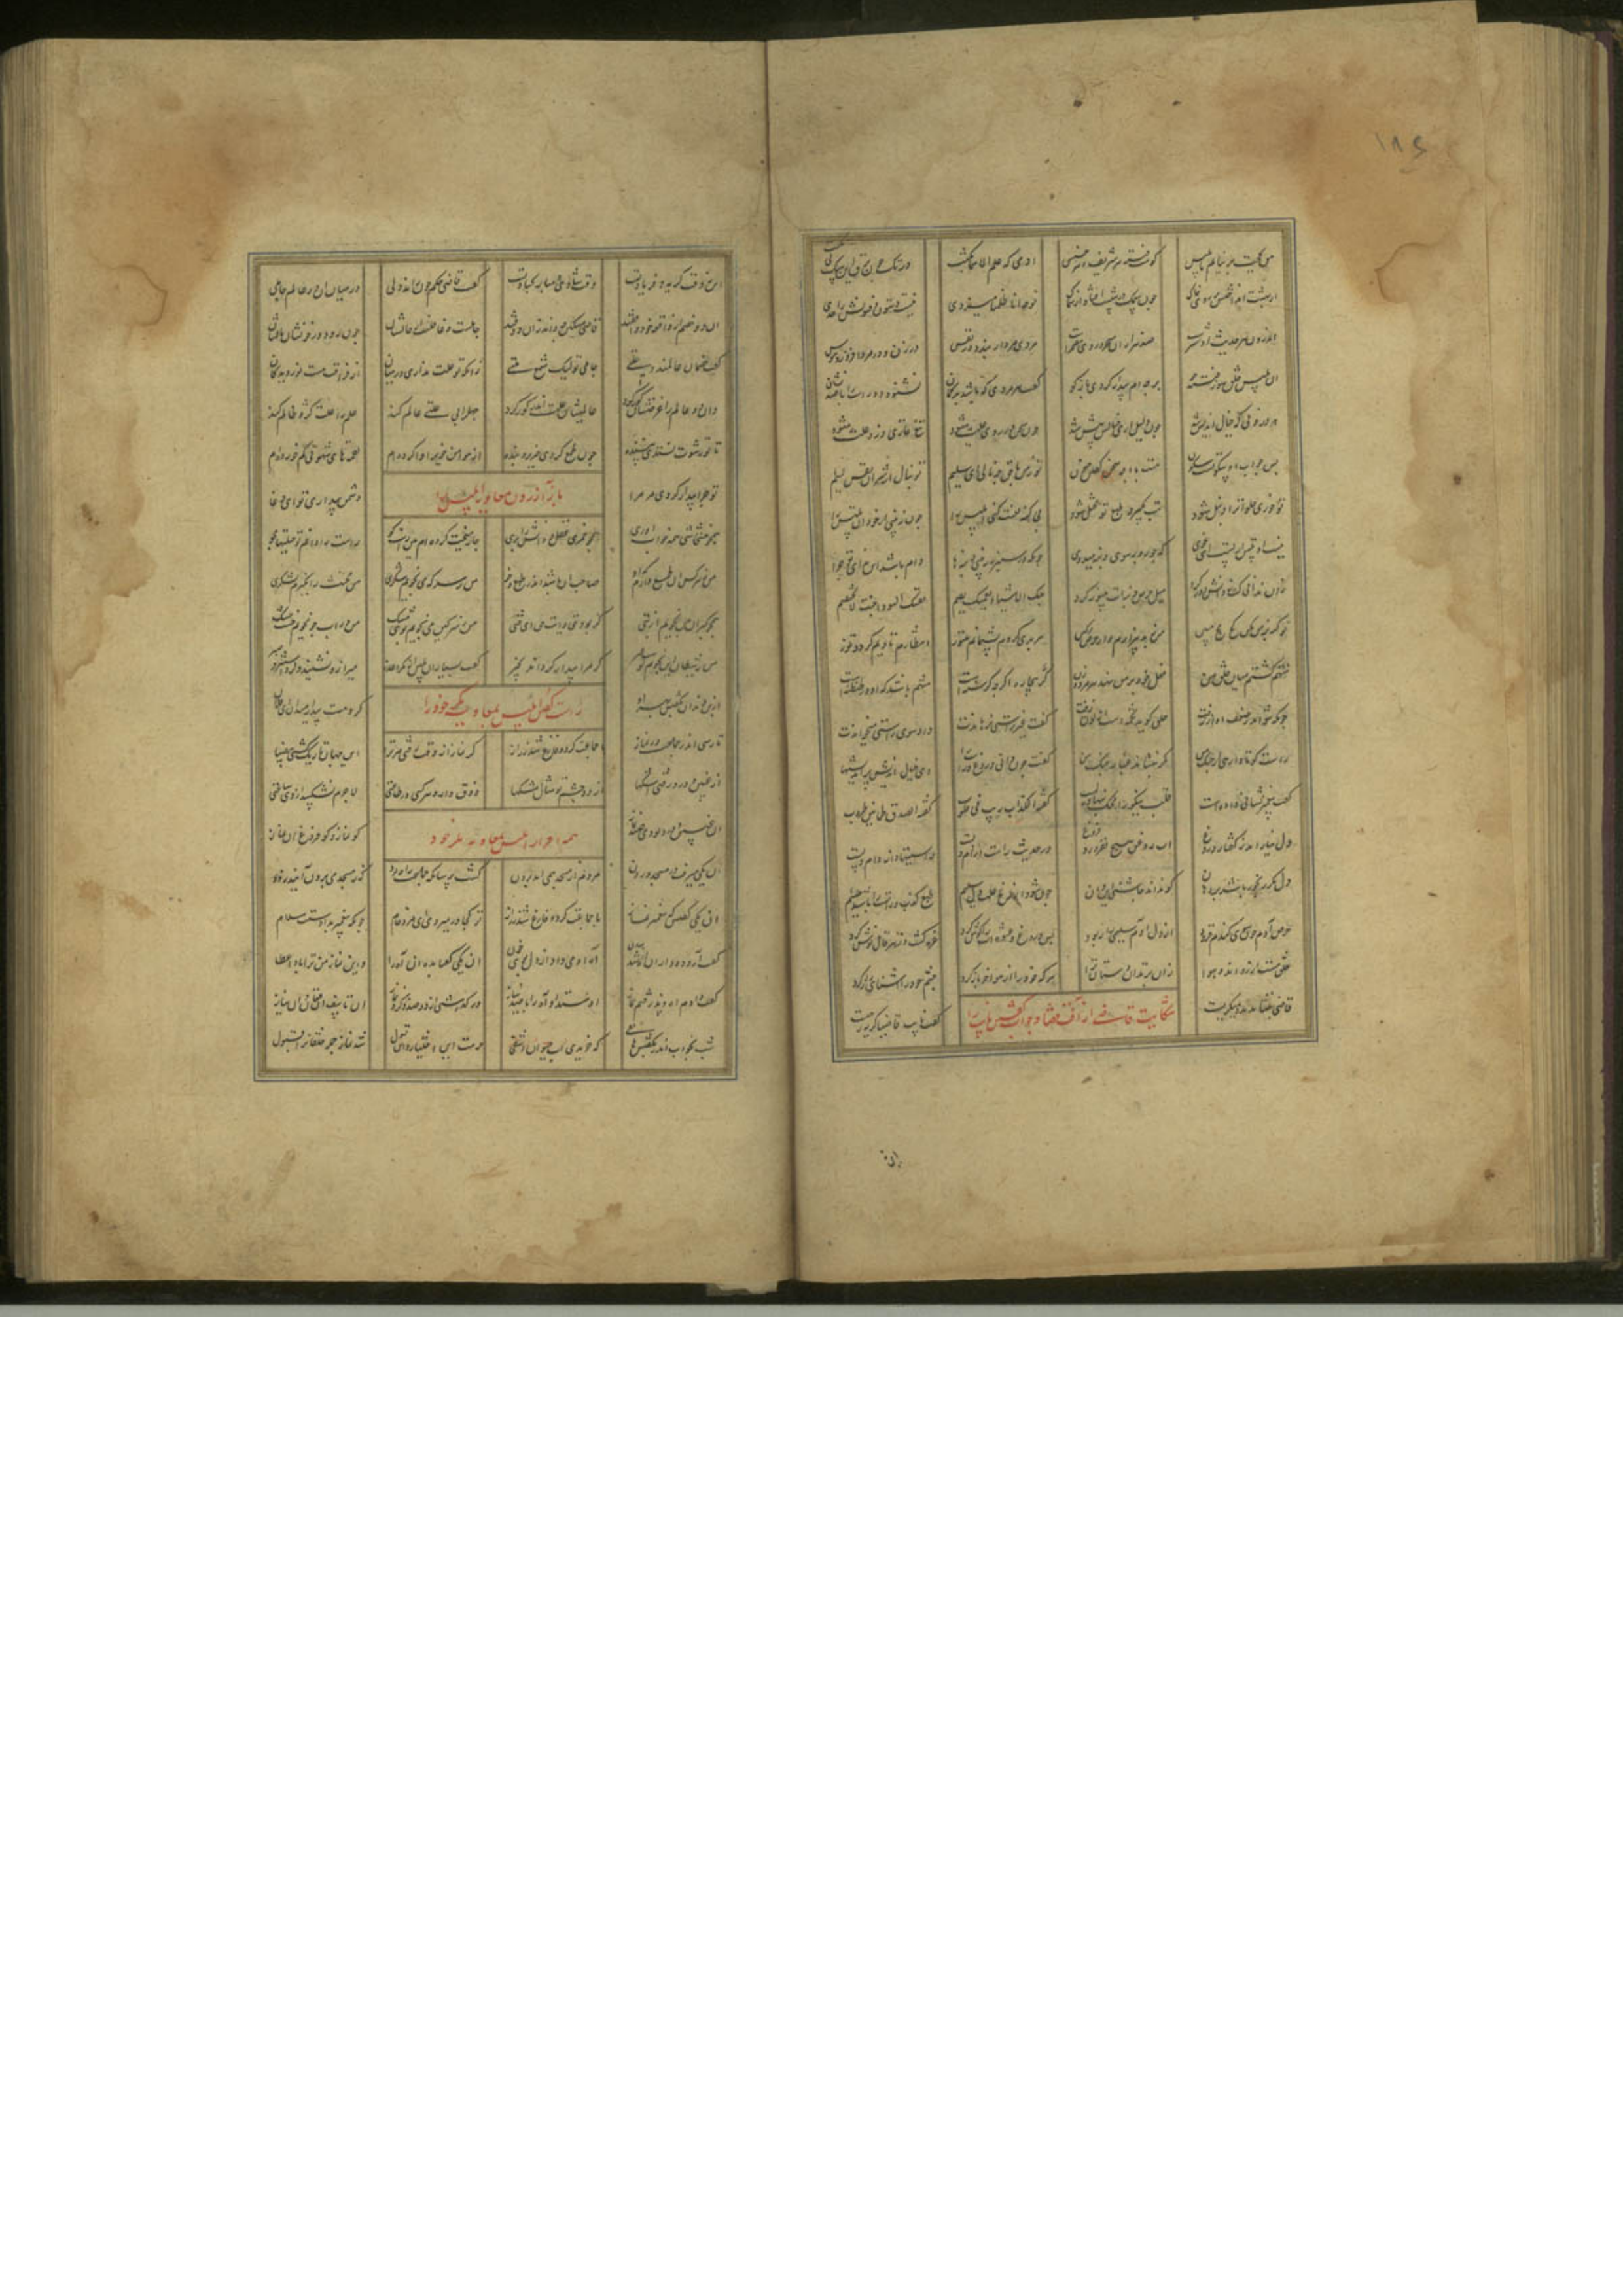 من بحجت بر نیایم با بلیس کوست فتنه هر شریف و هر خسیس آدمی که علم الاسما بکست در تک چون برق این سگ بی تکست
از بهشت انداختش بر روی خاک چون سمک در شست او شد از سماک نوحه انا ظلمنا میزدی نیست دستان و فسونش را حدی
اندرون هر حدیث او شرست صد هزاران سحر در وی مضمرست مردی مردان ببندد در نفس در زن و در مرد افروزد هوس
ای بلیس خلق سوز فتنه جو بر چه ام بیدار کردی راست گو گفت هر مردی که باشد بدگمان نشنود او راست را با صد نشان
هر درونی که خیال اندیش شد چون دلیل آری خیالش بیش شد چون سخن در وی رود علت شود تیغ غازی دزد را آلت شود
پس جواب او سکوتست و سکون هست با ابله سخن گفتن جنون تو ز من با حق چه نالی ای سلیم تو بنال از شر آن نفس لئیم
تو خوری حلوا ترا دنبل شود تب بگیرد طبع تو مختل شود بی گنه لعنت کنی ابلیس را چون نبینی از خود آن تلبیس را
نیست از ابلیس از تست ای غوی که چو روبه سوی دنبه میدوی چونکه در سبزه ببینی دنبها دام باشد این ندانی تو چرا
زان ندانی کت ز دانش دور کرد میل دنبه کور کرد حبک الاشیاء یعمیک یصم نفسک السودا جنت لا تختصم
تو گنه بر من منه کژ کژ مبین من ز بد بیزارم و از حرص و کین من بدی کردم پشیمانم هنوز انتظارم
متهم گشتم میان خلق من فعل خود بر من نهد هر مرد و زن گرگ بیچاره اگرچه گرسنه است متهم باشد که او در طنطنه است
چونکه نتواند ز ضعف او راه رفت خلق گوید تخمه است از لوت زفت گفت غیر راستی نرهاندت داد سوی راستی میخواندت
راست گو تا وا رهی از چنگ من مکر ننشاند غبار جنگ من گفت چون دانی دروغ و راست را ای خیال اندیش پر اندیشها
گفت پیغمبر نشانی داده است قلب و نیکو را محک بنهاده است گفته الکذاب ریب فی القلوب گفته الصدق طمانین طروب
دل نیارامد ز گفتار دروغ آب و روغن هیچ نفروزد فروغ در حدیث راست آرام دلست راستیها دانه دام دلست
دل مگر رنجور باشد بد دهان کو نداند چاشنی این و آن چون شود از رنج و علت دل سلیم طعم کذب و راست را باشد علیم
حرص آدم چون سوی گندم فزود از دل آدم سلیمی را ربود پس دروغ و عشوه ات را گوش کرد غره گشت و زهر قاتل نوش کرد
خلق مست آرزواند و هوا زان پذیرااند دستان ترا هر که خود را از هوا خو باز کرد چشم خود را آشنای راز کرد
قاضی بنشاندند و میگریست
شکایت قاضی از آفت قضا و جواب گفتن نایب را
گفت نایب قاضیا گریه ز چیست
این نه وقت گریه و فریاد تست وقت شادی و مبارکباد تست گفت قاضی حکم چون راند دلی در میان آن دو عالم جاهلی
آن دو خصم از واقعه خود واقفند قاضی مسکین چه داند زان دو بند جاهلست و غافلست از حالشان چون رود در خونشان و مالشان
گفت خصمان عالمند و علتی جاهلی تو لیک شمع ملتی زانکه تو علت نداری در میان آن فراغت هست نور دیدگان
وان دو عالم را غرضشان کور کرد علمشان را علت اندر گور کرد جهل را بی علتی عالم کند علم را علت کژ و ظالم کند
تا تو رشوت نستدی بیننده چون طمع کردی ضریر و بنده از هوا من خوی را وا کرده ام لقمهای شهوتی کم خورده ام
تو چرا بیدار کردی مر مرا
باز آزردن معاویه ابلیس را
دشمن بیداری تو ای دغا
همچو خشخاشی همه خواب آوری همچو خمری عقل و دانش را بری چارمیخت کرده ام هین راست گو راست را دانم تو حیلتها مجو
من ز هر کس آن طمع دارم که او صاحب آن باشد اندر طبع و خو من ز سرکه می نجویم شکری من مخنث را نگیرم لشکری
همچو گبران من نجویم از بتی کو بود حق یا من ز سرگین می نجویم بوی مشک من در آب جو نجویم خشت خشک
من ز شیطان این نجویم کو که مرا بیدار گرداند بخیر گفت بسیار آن بلیس از مکر و غدر میر ازو نشنید و کرد استیز و صبر
از بن دندان بگفتش بهر آن
راست گفتن ابلیس بمعاویه مکر خود را
کردمت بیدار میدان ای فلان
تا رسی اندر جماعت در نماز با جماعت کرده فارغ شد ز راز گر نماز از وقت رفتی مر ترا این جهان تاریک گشتی بی ضیا
از غبین و درد رفتی اشکها از دو چشم تو مثال مشکها ذوق دارد هر کسی در طاعتی لاجرم نشکیبد از وی ساعتی
آن غبین و درد بودی صد نماز
کو نماز و کو فروغ آن نیاز
آن یکی میرفت در مسجد درون مردم از مسجد همی آمد برون گشت پرسان که جماعت را چه بود کز مسجد می برون آیند زود
آن یکی گفتش که پیغمبر نماز با جماعت کرد و فارغ شد ز راز تو کجا در میروی ای مرد خام چونکه پیغمبر بدادست السلام
گفت آه و دود از آن آه شد برون آه او میداد از دل بوی خون آن یکی گفتا بده آن آه را وین نماز من ترا بادا عطا
گفت دادم آه و پذرفتم نماز او ستد آن آه را با صد نیاز آن تاسف آن فغان و آن نیاز
شب بخواب اندر بگفتش هاتفی که خریدی آب حیوان و شفی حرمت این اختیار و این دخول شد نماز جمله خلقانت قبول